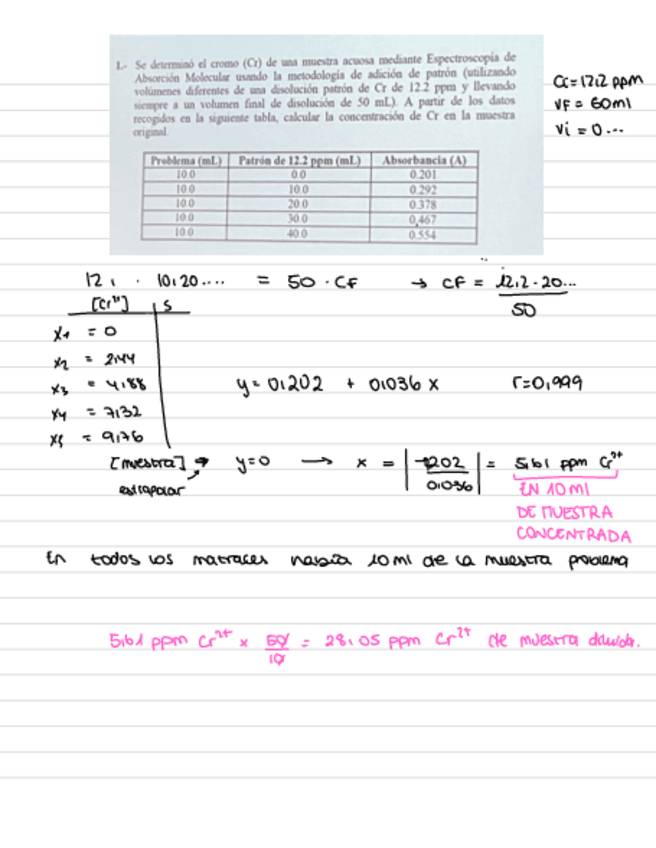 1.- Se determinó el cromo (Cr) de una muestra acuosa mediante Espectroscopía de
Absorción Molecular usando la metodología de adición de patrón (utilizando
volúmenes diferentes de una disolución patrón de Cr de 12.2 ppm y llevando
siempre a un volumen final de disolución de 50 mL). A partir de los datos
recogidos en la siguiente tabla, calcular la concentración de Cr en la muestra
original.
Cc = 12,2 ppm
VF = 50 ml
Vi = 0...
Problema (mL) Patrón de 12.2 ppm (mL) Absorbancia (A)
10.0 0.0 0.201
10.0 10.0 0.292
10.0 20.0 0.378
10.0 30.0 0,467
10.0 40.0 0.554
12, · 10,20.... = 50 · CF → CF = 12,2 · 20...
50
[Cr"] S
X1 = 0
X2 = 2,44
X3 = 4,88 y = 0,202 + 0,036 x r=0,999
X4 = 7,32
X5 = 9,76
[muestra] → y=0 → x = | -0,202 / 0,036 | = 5,61 ppm Cr²⁺
extrapolar
EN 10 ml
DE MUESTRA
CONCENTRADA
En todos los matraces había 10 ml de la muestra problema
5,61 ppm Cr²⁺ x 50/10 = 28,05 ppm Cr²⁺ de muestra diluida.